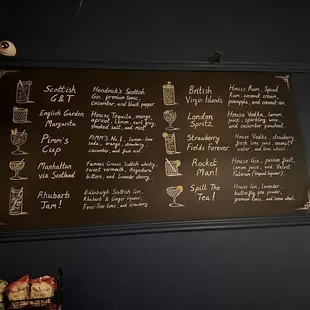 Scottish
G&T
Hendrick's Scottish
Gin, premium tonic,
cucumber, and black pepper
English Garden
Margarita
House Tequila, orange,
apricot, lemon, earl grey,
smoked salt, and
Pimm's
Cup
PIMM'S No.1, Lemon-lime
soda, orange, strawberry,
cucumber, and fresh mint
Manhattan
via Scotland
Famous Grouse Scottish whisky,
sweet vermouth, Angostura
bitters, and cherry
Rhubarb
Jam!
Edinburgh Scottish Gin,
Rhubarb & Ginger liqueur,
Fever Tree tonic, and strawberry
British
Virgin Islands
House Rum, Spiced
Rum, coconut cream,
pineapple, and coconut rim
London
Spritz
House Vodka, Lemon
juice, sparkling wine,
and cucumber
Strawberry
Fields Forever
House Vodka, strawberry,
fresh lime juice, coconut
water, and lime wheel
Rocket
Man!
House Gin, passion fruit,
lemon juice, and Velvet
Falernum (tropical liqueur)
Spill The
Tea!
House Gin, lavender,
butterfly pea powder,
premium tonic, and lemon wheel